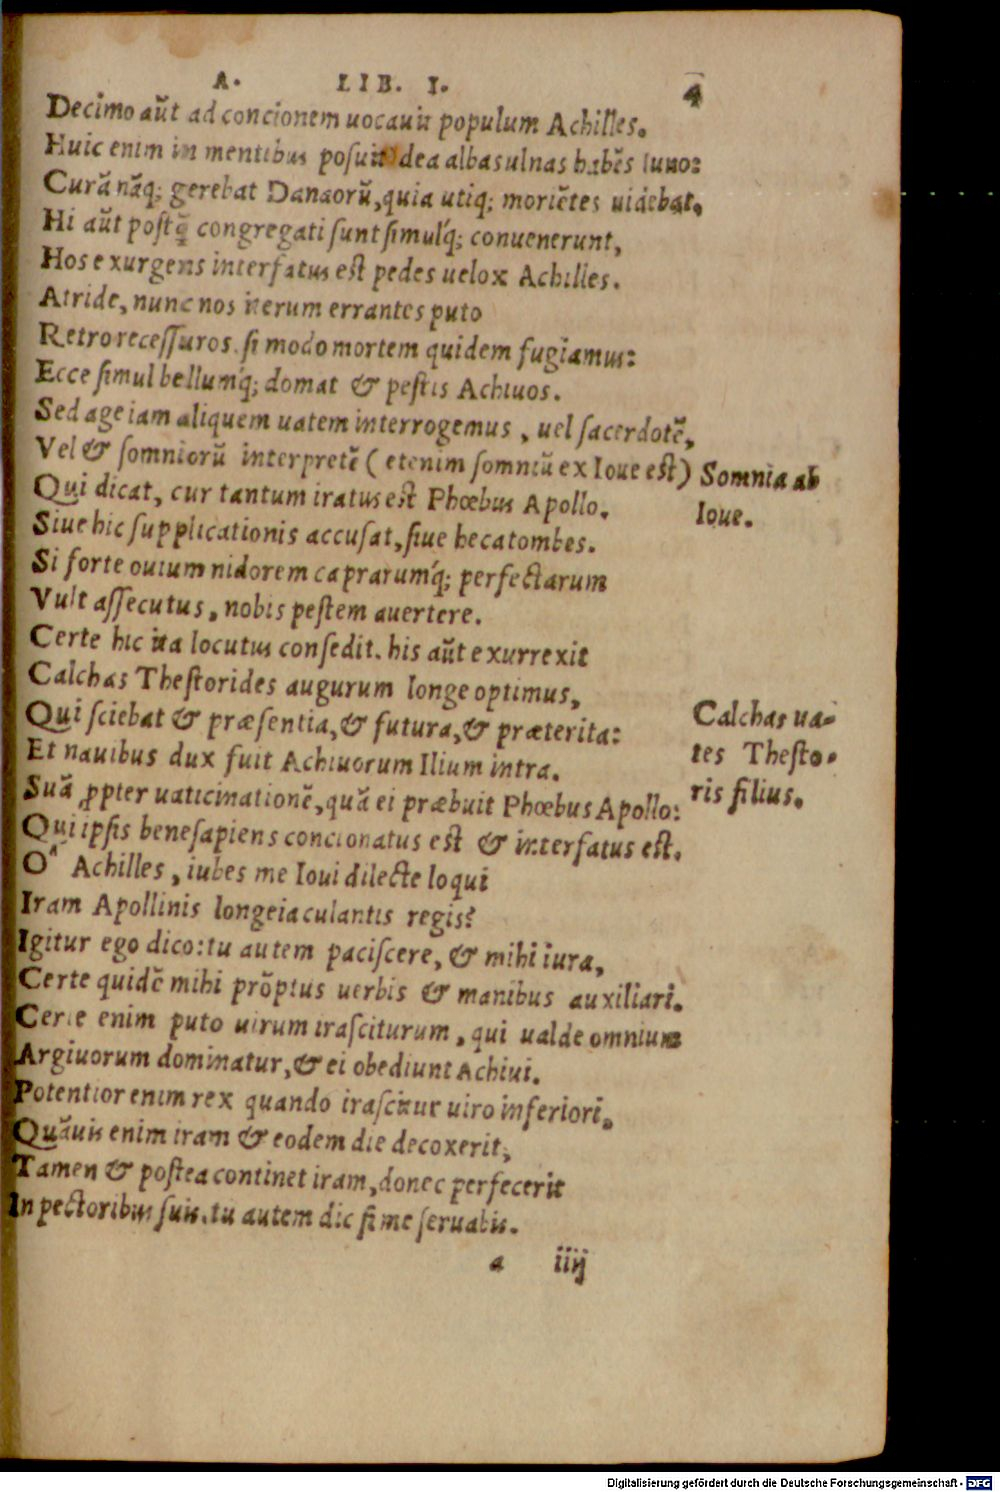 A. LIB. I. 4
Decimo aũt ad concionem uocauit populum Achilles.
Huic enim in mentibus posuit dea albas ulnas habẽs Iuno:
Curã nãq; gerebat Danaorũ, quia utiq; moriẽtes uidebat.
Hi aũt postq̃ congregati sunt simulq́; conuenerunt,
Hos exurgens interfatus est pedes uelox Achilles.
Atride, nunc nos iterum errantes puto
Retro recessuros. si modo mortem quidem fugiamus:
Ecce simul bellumq́; domat & pestis Achiuos.
Sed age iam aliquem uatem interrogemus, uel sacerdotẽ,
Vel & somniorũ interpretẽ (etenim somniũ ex Ioue est) Somnia ab
Qui dicat, cur tantum iratus est Phœbus Apollo.
Ioue.
Siue hic supplicationis accusat, siue hecatombes.
Si forte ouium nidorem caprarumq́; perfectarum
Vult assecutus, nobis pestem auertere.
Certe hic ita locutus consedit. his aũt exurrexit
Calchas Thestorides augurum longe optimus,
Qui sciebat & præsentia, & futura, & præterita:
Calchas ua-
Et nauibus dux fuit Achiuorum Ilium intra.
tes Thesto-
Suã ꝓpter uaticinationẽ, quã ei præbuit Phœbus Apollo:
ris filius.
Qui ipsis bene sapiens concionatus est & interfatus est.
O^ Achilles, iubes me Ioui dilecte loqui
Iram Apollinis longe iaculantis regis?
Igitur ego dico: tu autem paciscere, & mihi iura,
Certe quidẽ mihi prõptus uerbis & manibus auxiliari.
Certe enim puto uirum irasciturum, qui ualde omnium
Argiuorum dominatur, & ei obediunt Achiui.
Potentior enim rex quando irascitur uiro inferiori.
Quãuis enim iram & eodem die decoxerit,
Tamen & postea continet iram, donec perfecerit
In pectoribus suis. tu autem dic si me seruabis.
a iiij
Digitalisierung gefördert durch die Deutsche Forschungsgemeinschaft - DFG